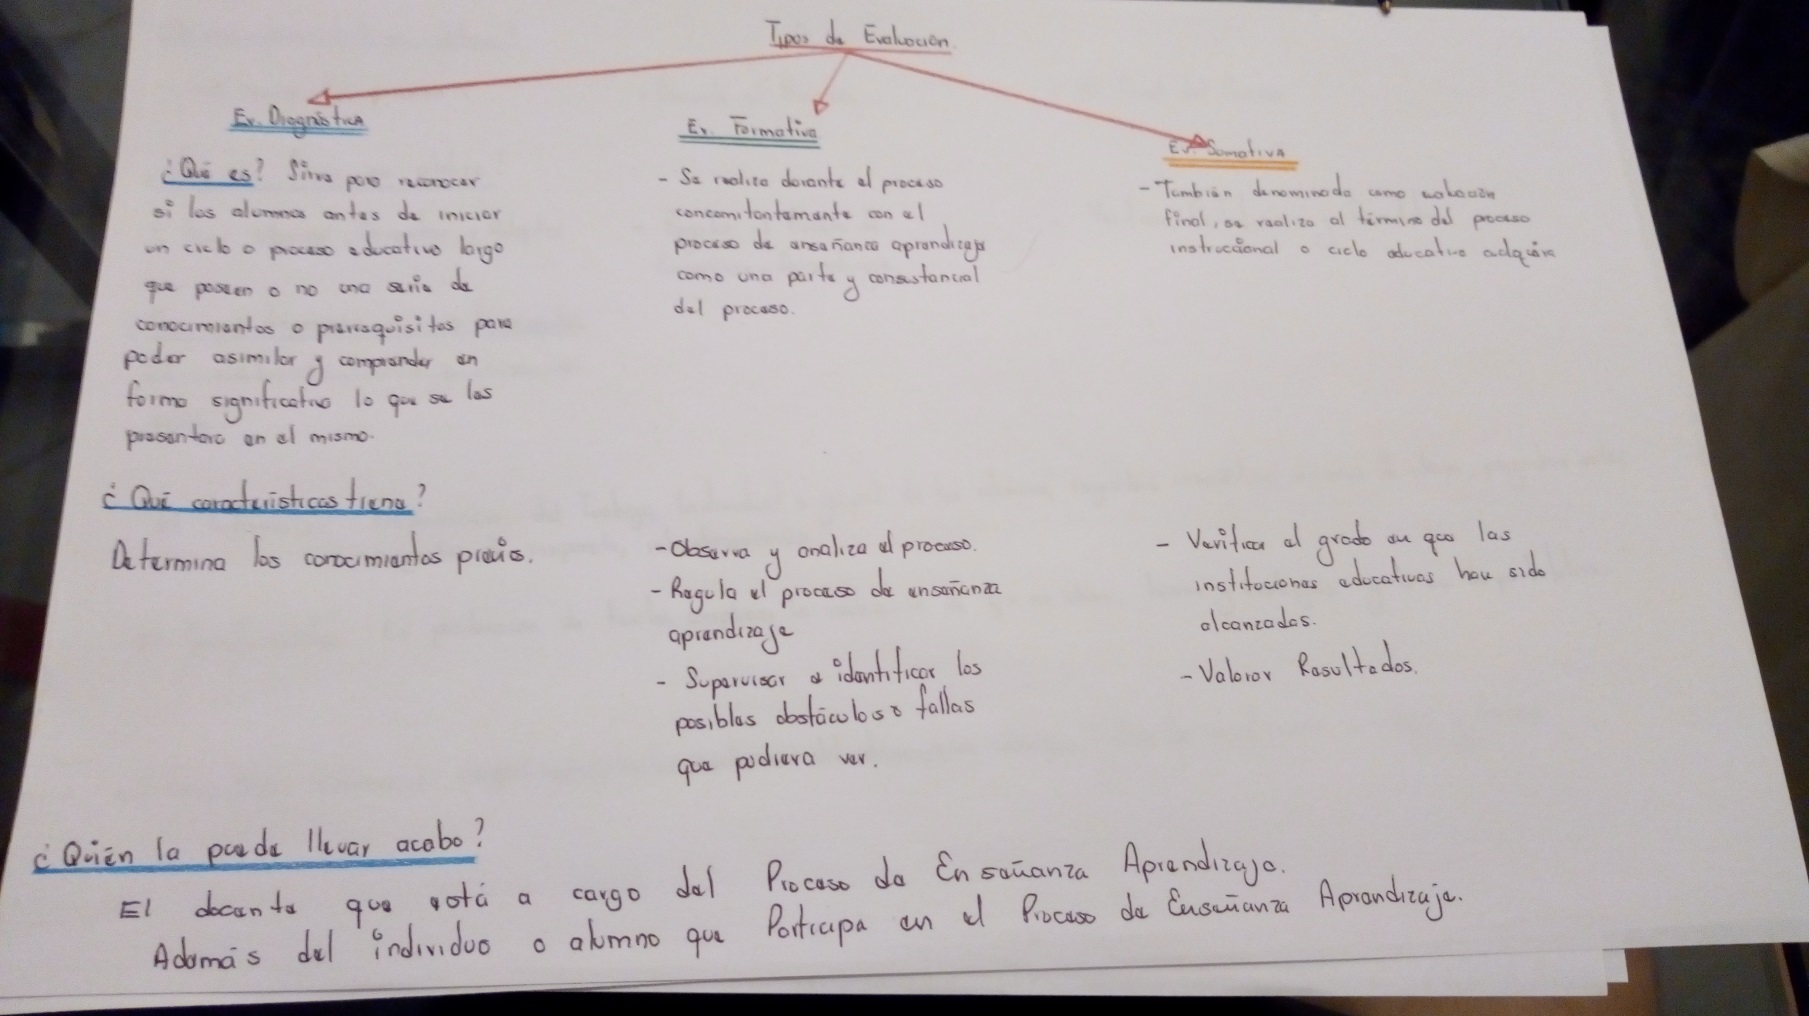 Tipos de Evaluación.
Ev. Diagnóstica
¿Qué es? Sirve para reconocer
si los alumnos antes de iniciar
un ciclo o proceso educativo largo
que poseen o no una serie de
conocimientos o prerrequisitos para
poder asimilar y comprender en
forma significativa lo que se les
presentara en el mismo.
Ev. Formativa
- Se realiza durante el proceso
concomitantemente con el
proceso de enseñanza aprendizaje
como una parte y consustancial
del proceso.
Ev. Sumativa
- También denominada como
final, se realiza al término del proceso
instruccional o ciclo educativo adquire
¿Qué características tiene?
Determina los conocimientos previos.
- Observa y analiza el proceso.
- Regula el proceso de enseñanza
aprendizaje
- Supervisar e identificar los
posibles obstáculos o fallas
que pudiera ver.
- Verificar el grado en que las
instituciones educativas han sido
alcanzados.
- Valorar Resultados.
¿Quién la puede llevar acabo?
El docente que está a cargo del Proceso de Enseñanza Aprendizaje.
Además del individuo o alumno que Participa en el Proceso de Enseñanza Aprendizaje.